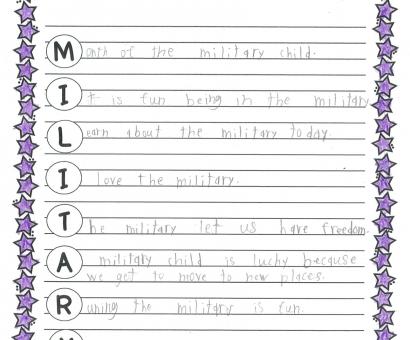 Month of the military child.
It is fun being in the military
Learn about the military today.
I love the military.
The military let us have freedom.
A military child is lucky because
we get to move to new places.
Runing the military is fun.